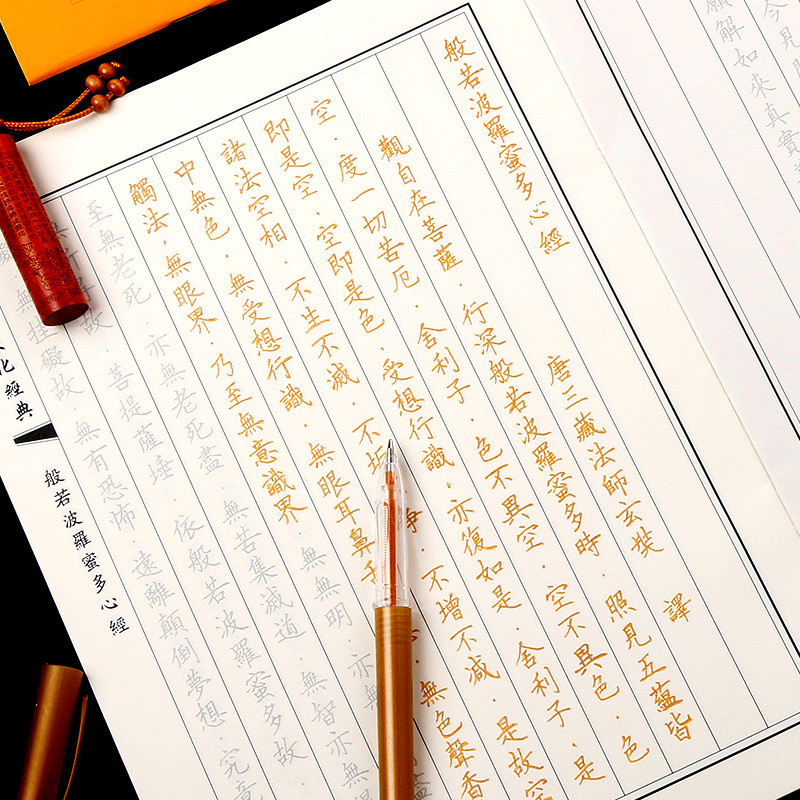 今見
願解如來真實
般若波羅蜜多心經
唐三藏法師玄奘 譯
觀自在菩薩．行深般若波羅蜜多時．照見五蘊皆
空．度一切苦厄．舍利子．色不異空．空不異色．色
即是空．空即是色．受想行識．亦復如是．舍利子．是
諸法空相．不生不滅．不垢 淨．不增不減．是故空
中無色．無受想行識．無眼耳鼻舌 ．無色聲香
觸法．無眼界．乃至無意識界．無無明．亦無
至無老死．亦無老死盡．無苦集滅道．無智亦無
得故．菩提薩埵．依般若波羅蜜多故
無罣礙故．無有恐怖．遠離顛倒夢想．究竟
化經典
般若波羅蜜多心經